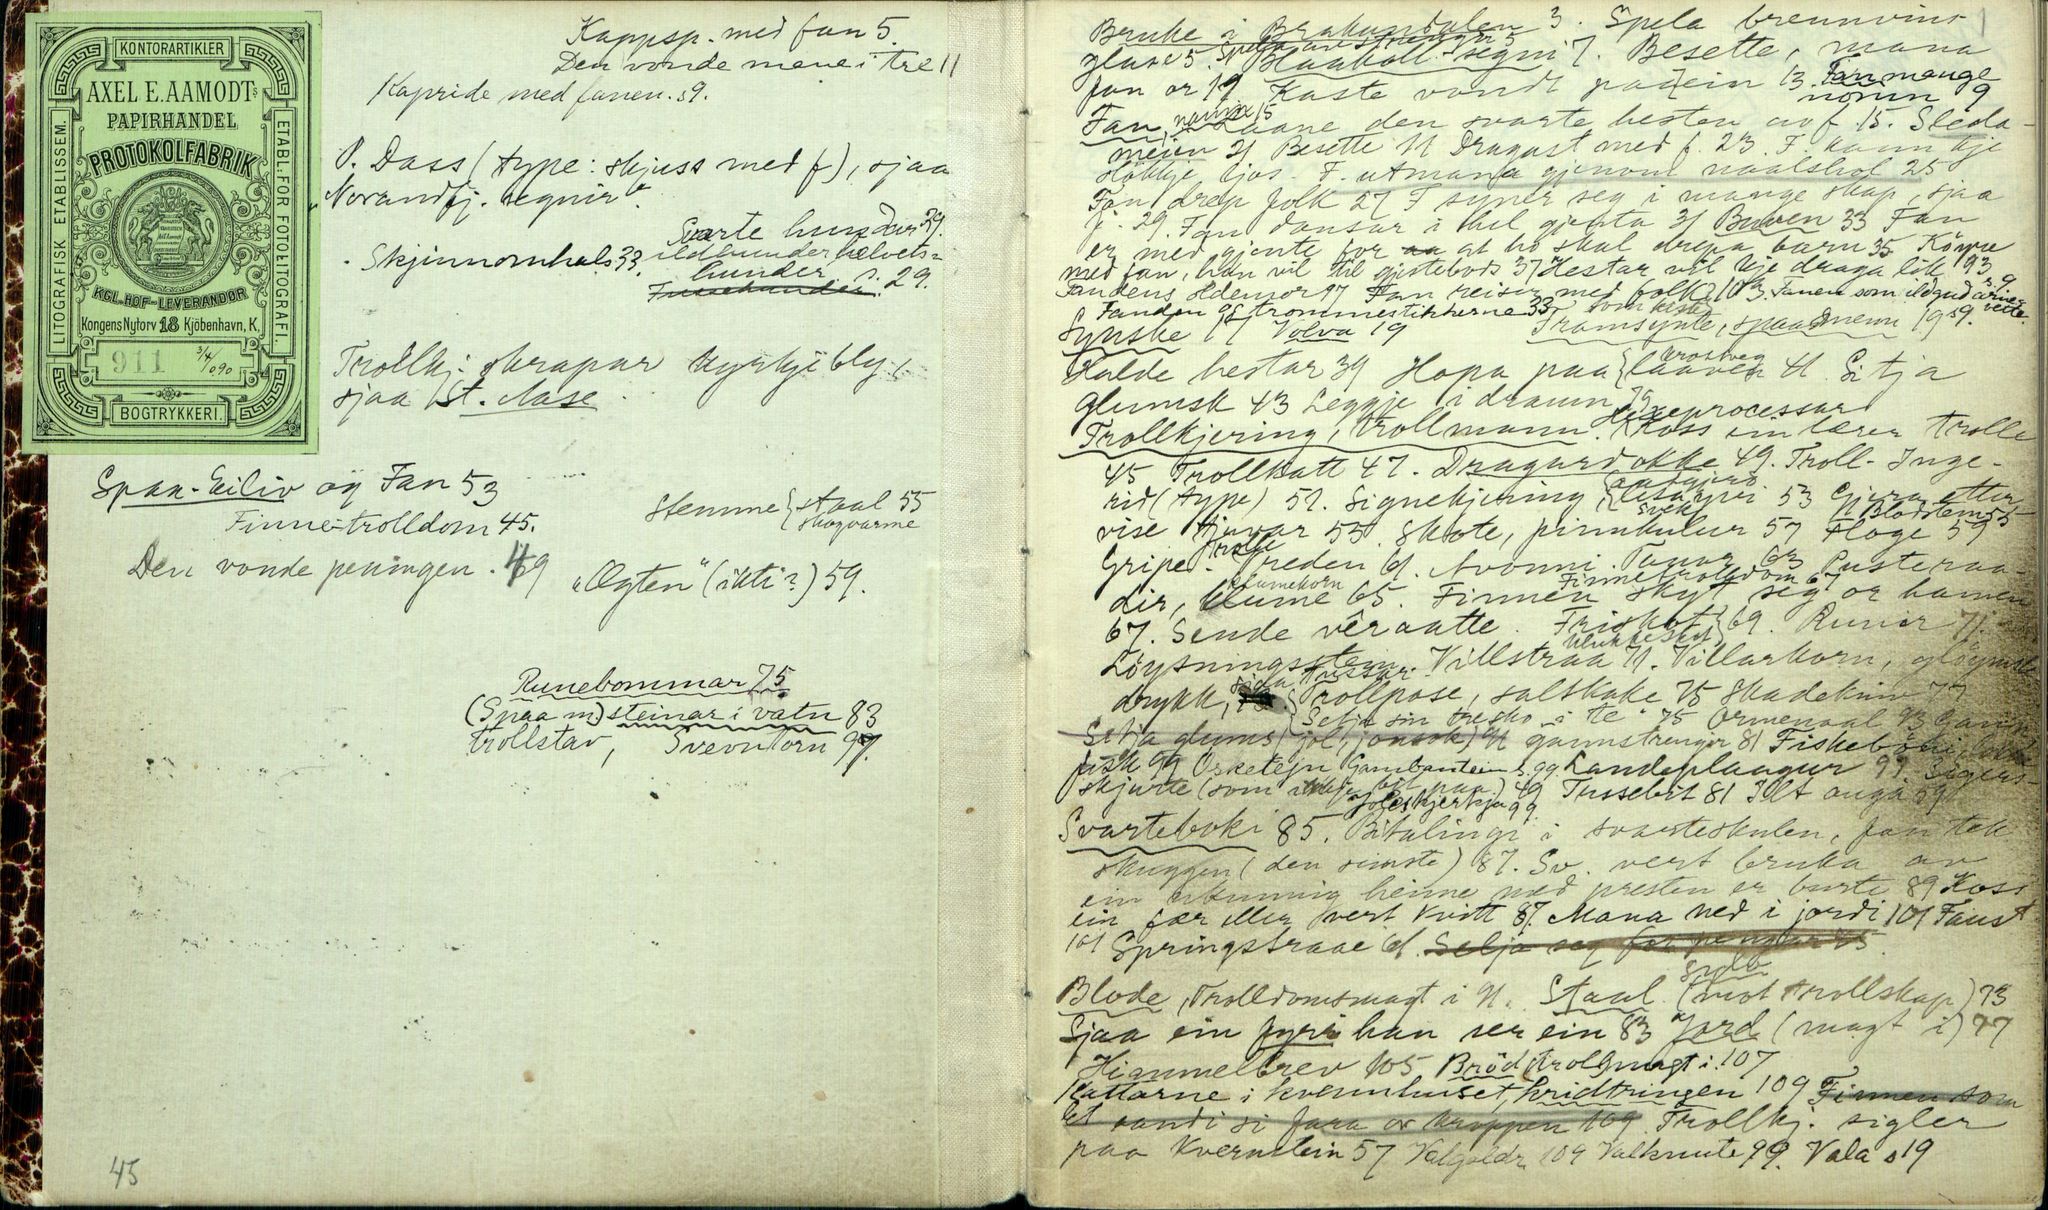 KONTORARTIKLER
AXEL E. AAMODTs
PAPIRHANDEL
PROTOKOLFABRIK
KGL. HOF-LEVERANDØR
Kongens Nytorv 18 Kjöbenhavn, K.
911 3/4 090
BOGTRYKKERI.
LITOGRAFISK ETABLISSEM.
ETABL. FOR FOTOLITOGRAFI.
Kappsp. med fan 5.
Den vonde mane i tre 11
Kapride med fanen. s9.
P. Dass (type: skjuss med f), sjaa
"Norandfj. segnir".
Svarte hundar 29.
Skjinnomhals 33. ildhunder helvets=
hunder s. 29.
Trollkj. skrapar kyrkjebly,
sjaa St. Aase.
Spaa-Eiliv og Fan 53
Finne-trolldom 45.
Stemme { staal 55
skogvarme
Den vonde peningen. 49
"Øgten" (ikti?) 59.
Runebommar 75
(Spaa m) steinar i vatn 83
trollstav, Svevntorn 97.
45
1
Bruke i Brakandalen 3. Spela brennvins
glas 5. Blaakoll-segni 7. Besette, mana
fan or 19 Kaste vondt paa ein 13 Fan mange
namn 9
Fan, namn 15 Laane den svarte hesten av f. 15. Sleda-
meien 21 Besette 11 Dragast med f. 23. F. kann kje
sløkkje ljos. F. utmana gjenom naalshol 25
Fan drep folk 27 F syner seg i mange skap, sjaa
f. 29. Fan dansar i hel gjenta 31 Buven 33 Fan
er med gjente for at ho skal drepa barn 35 Køyre
med fan, han vil til gjestebods 37 Hestar vil kje draga lik 93
Fandens oldemor 97 Fan reiser med folk 21 Fanen som ildgud
Fanden og trommestikkerne 33
Synske 17 Volva 19 Framsynte, spaamenn 19 s9.
Halde hestar 39 Hopa paa { krossveg laaven 41. Sitja
glumsk 43 Leggje i draum 79
Hexeprocessar
Trollkjering, trollmann. Koss ein lærer trolle
45 Trollkatt 47. Dragardokke 49. Troll-Inge-
rid (type) 51. Signekjering 53 Gjera etter
Blodstem 55
vise tjuvar 55. Skote, pinnkulur 57 Floge 59
Gripe. Vreden 61. Avonni. Tanar 63 Pusteraa-
dir, klume 65. Finnen skyt seg or hamen
Finnetrolldom 67
67. Sende veraatte. Friskot } 69. Runir 71.
Løysningsstein. Villstraa 71. Villarkorn, gløymsle
drykk, Trollpose, saltkake 75
Setja glums (jol, jonsok) 41 gannstrenger 81 Fiskebøn
fisk 99 Osketein Gambantein s. 99. Landeplaagur 97. Sigers-
skjurte 49 Tussebit 81 Ilt auga 59
Svarteboki 85. Bitalingi i svarteskulen, fan tek
skuggen (den siniste) 87. Sv. vert bruka av
ein ukunnig heime med presten er burte 89 Koss
ein fær eller vert kvitt 87. Mana ned i jordi 101 Faust
101 Springstraae 61. Selja seg for pengar 45
Sylv
Blode, Trolldomsmagt i 71. Staal (mot trollskap) 73
Sjaa ein fyrr han ser ein 83 Jord (magt i) 77
Himmelbrev 105 Brød (trollmagt i. 107
Kattarne i kvernhuset, kridtringen 109 Finnen som
let aandi si fara or kroppen 109 Trollkj. sigler
paa kvernstein 57 Valgaldr 109 Valknute 99. Vala s 19